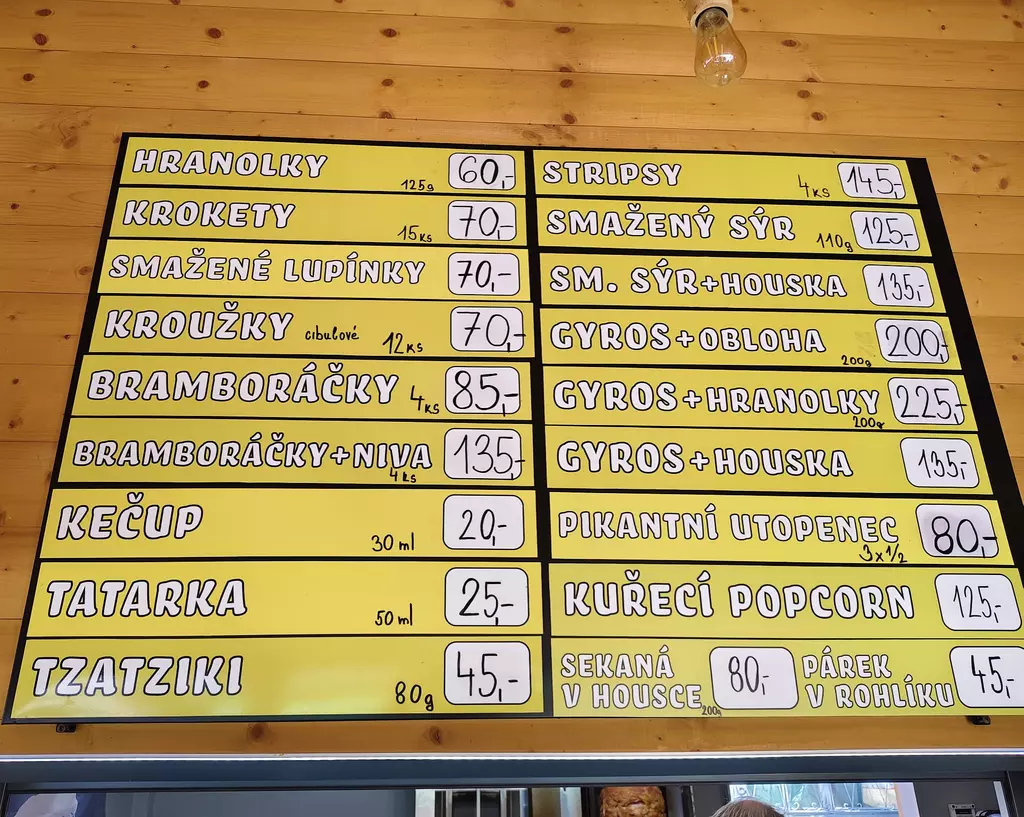 HRANOLKY 125g 60,-
KROKETY 15ks 70,-
SMAŽENÉ LUPÍNKY 70,-
KROUŽKY cibulové 12ks 70,-
BRAMBORÁČKY 4ks 85,-
BRAMBORÁČKY+NIVA 4ks 135,-
KEČUP 30ml 20,-
TATARKA 50ml 25,-
TZATZIKI 80g 45,-
STRIPSY 4ks 145,-
SMAŽENÝ SÝR 110g 125,-
SM. SÝR+HOUSKA 135,-
GYROS+OBLOHA 200g 200,-
GYROS+HRANOLKY 200g 225,-
GYROS+HOUSKA 135,-
PIKANTNÍ UTOPENEC 3x1/2 80,-
KUŘECÍ POPCORN 125,-
SEKANÁ
V HOUSCE 200g 80,-
PÁREK
V ROHLÍKU 45,-